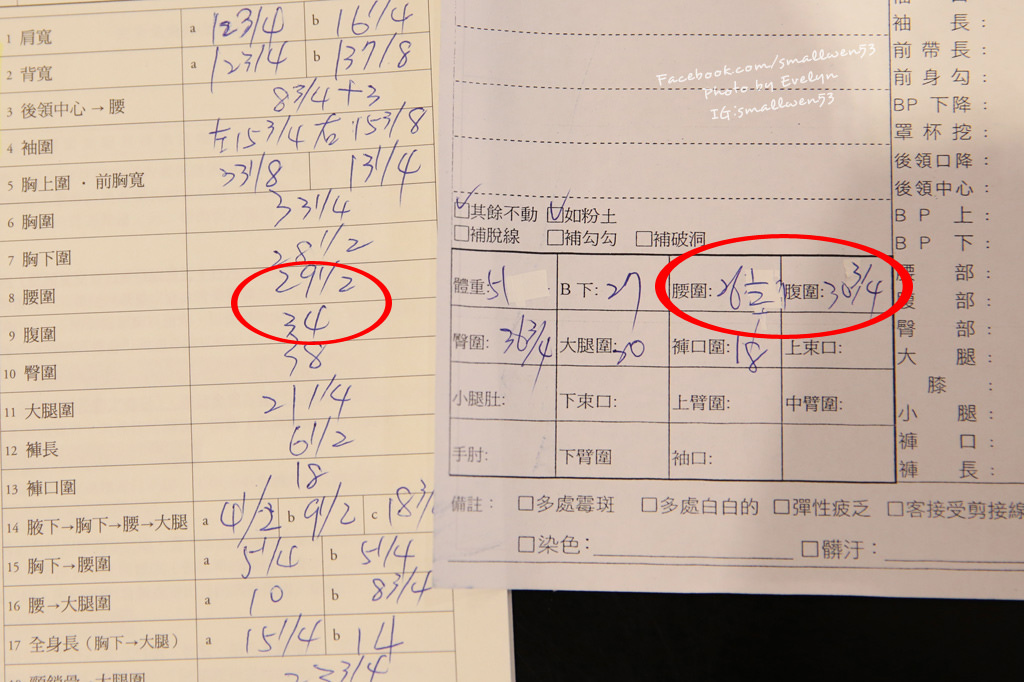 1 肩寬 a 123/4 b 161/4
2 背寬 a 123/4 b 137/8
3 後領中心→腰 83/4+3
4 袖圍 左153/4 右153/8
5 胸上圍・前胸寬 331/8 131/4
6 胸圍 331/4
7 胸下圍 281/2
8 腰圍 291/2
9 腹圍 34
10 臀圍 38
11 大腿圍 211/4
12 褲長 61/2
13 褲口圍 18
14 腋下→胸下→腰→大腿 a 41/2 b 91/2 c 183/
15 胸下→腰圍 a 51/4 b 51/4
16 腰→大腿圍 a 10 b 83/4
17 全身長(胸下→大腿) a 151/4 b 14
大腿圍
Facebook.com/smallwen53
Photo by Evelyn
IG:smallwen53
袖長:
前帶長:
前身勾:
BP下降:
罩杯挖:
後領口降:
後領中心:
BP上:
BP下:
腰部:
腹部:
臀部:
大腿:
膝:
小腿:
褲口:
褲長:
☑其餘不動 ☑如粉土
□補脫線 □補勾勾 □補破洞
體重:51 B下:27 腰圍:26 1/2 腹圍:30 3/4
臀圍:36 3/4 大腿圍:20 褲口圍:18 上束口:
小腿肚: 下束口: 上臂圍: 中臂圍:
手肘: 下臂圍 袖口:
備註: □多處霉斑 □多處白白的 □彈性疲乏 □客接受剪接線
□染色: □髒汙: